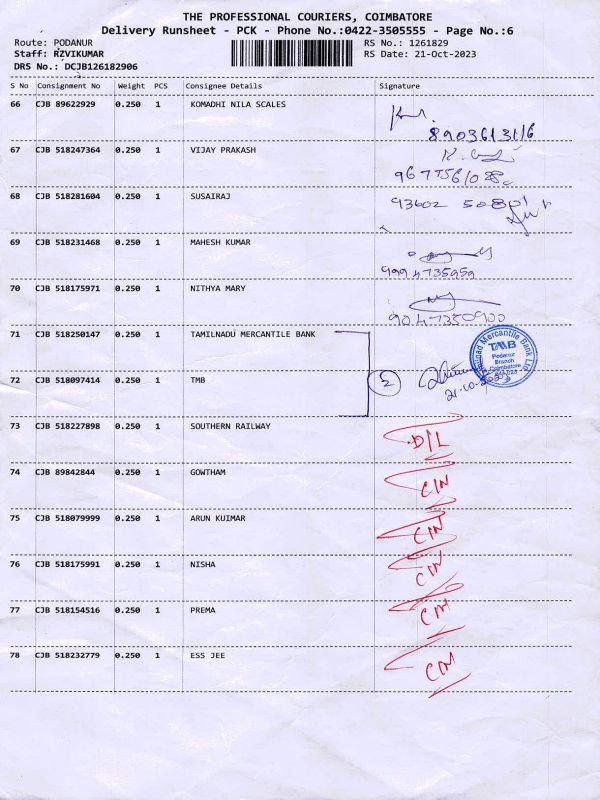 THE PROFESSIONAL COURIERS, COIMBATORE
Delivery Runsheet - PCK - Phone No.:0422-3505555 - Page No.:6
Route: PODANUR RS No.: 1261829
Staff: RZVIKUMAR RS Date: 21-Oct-2023
DRS No.: DCJB126182906
S No Consignment No Weight PCS Consignee Details Signature
66 CJB 89622929 0.250 1 KOMADHI NILA SCALES
8903613116
67 CJB 518247364 0.250 1 VIJAY PRAKASH
68 CJB 518281604 0.250 1 SUSAIRAJ 93602 50801
69 CJB 518231468 0.250 1 MAHESH KUMAR
9994735959
70 CJB 518175971 0.250 1 NITHYA MARY
9047350900
71 CJB 518250147 0.250 1 TAMILNADU MERCANTILE BANK
Tamilnad Mercantile Bank Ltd
TMB
Podanur
Branch
Coimbatore
72 CJB 518097414 0.250 1 TMB 2
21-10-2023
73 CJB 518227898 0.250 1 SOUTHERN RAILWAY D/L
74 CJB 89842844 0.250 1 GOWTHAM C/N
75 CJB 518079999 0.250 1 ARUN KUIMAR C/N
76 CJB 518175991 0.250 1 NISHA C/N
77 CJB 518154516 0.250 1 PREMA C/N
78 CJB 518232779 0.250 1 ESS JEE C/N